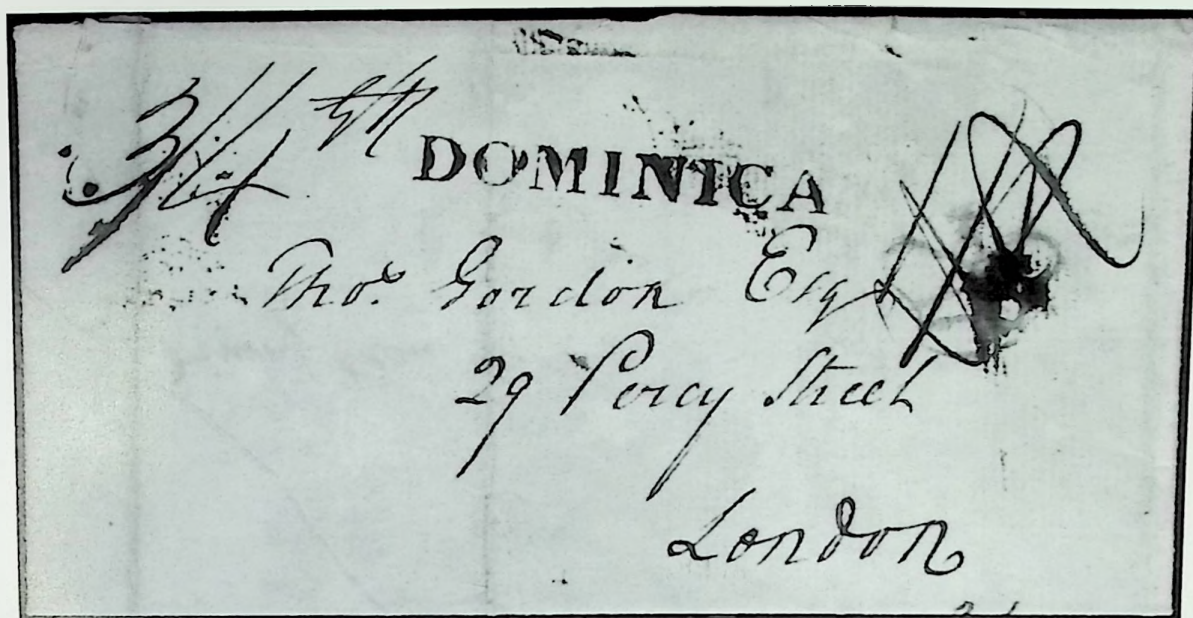 3/4
DOMINICA
Thos. Gordon Esqr
29 Percy Street
London